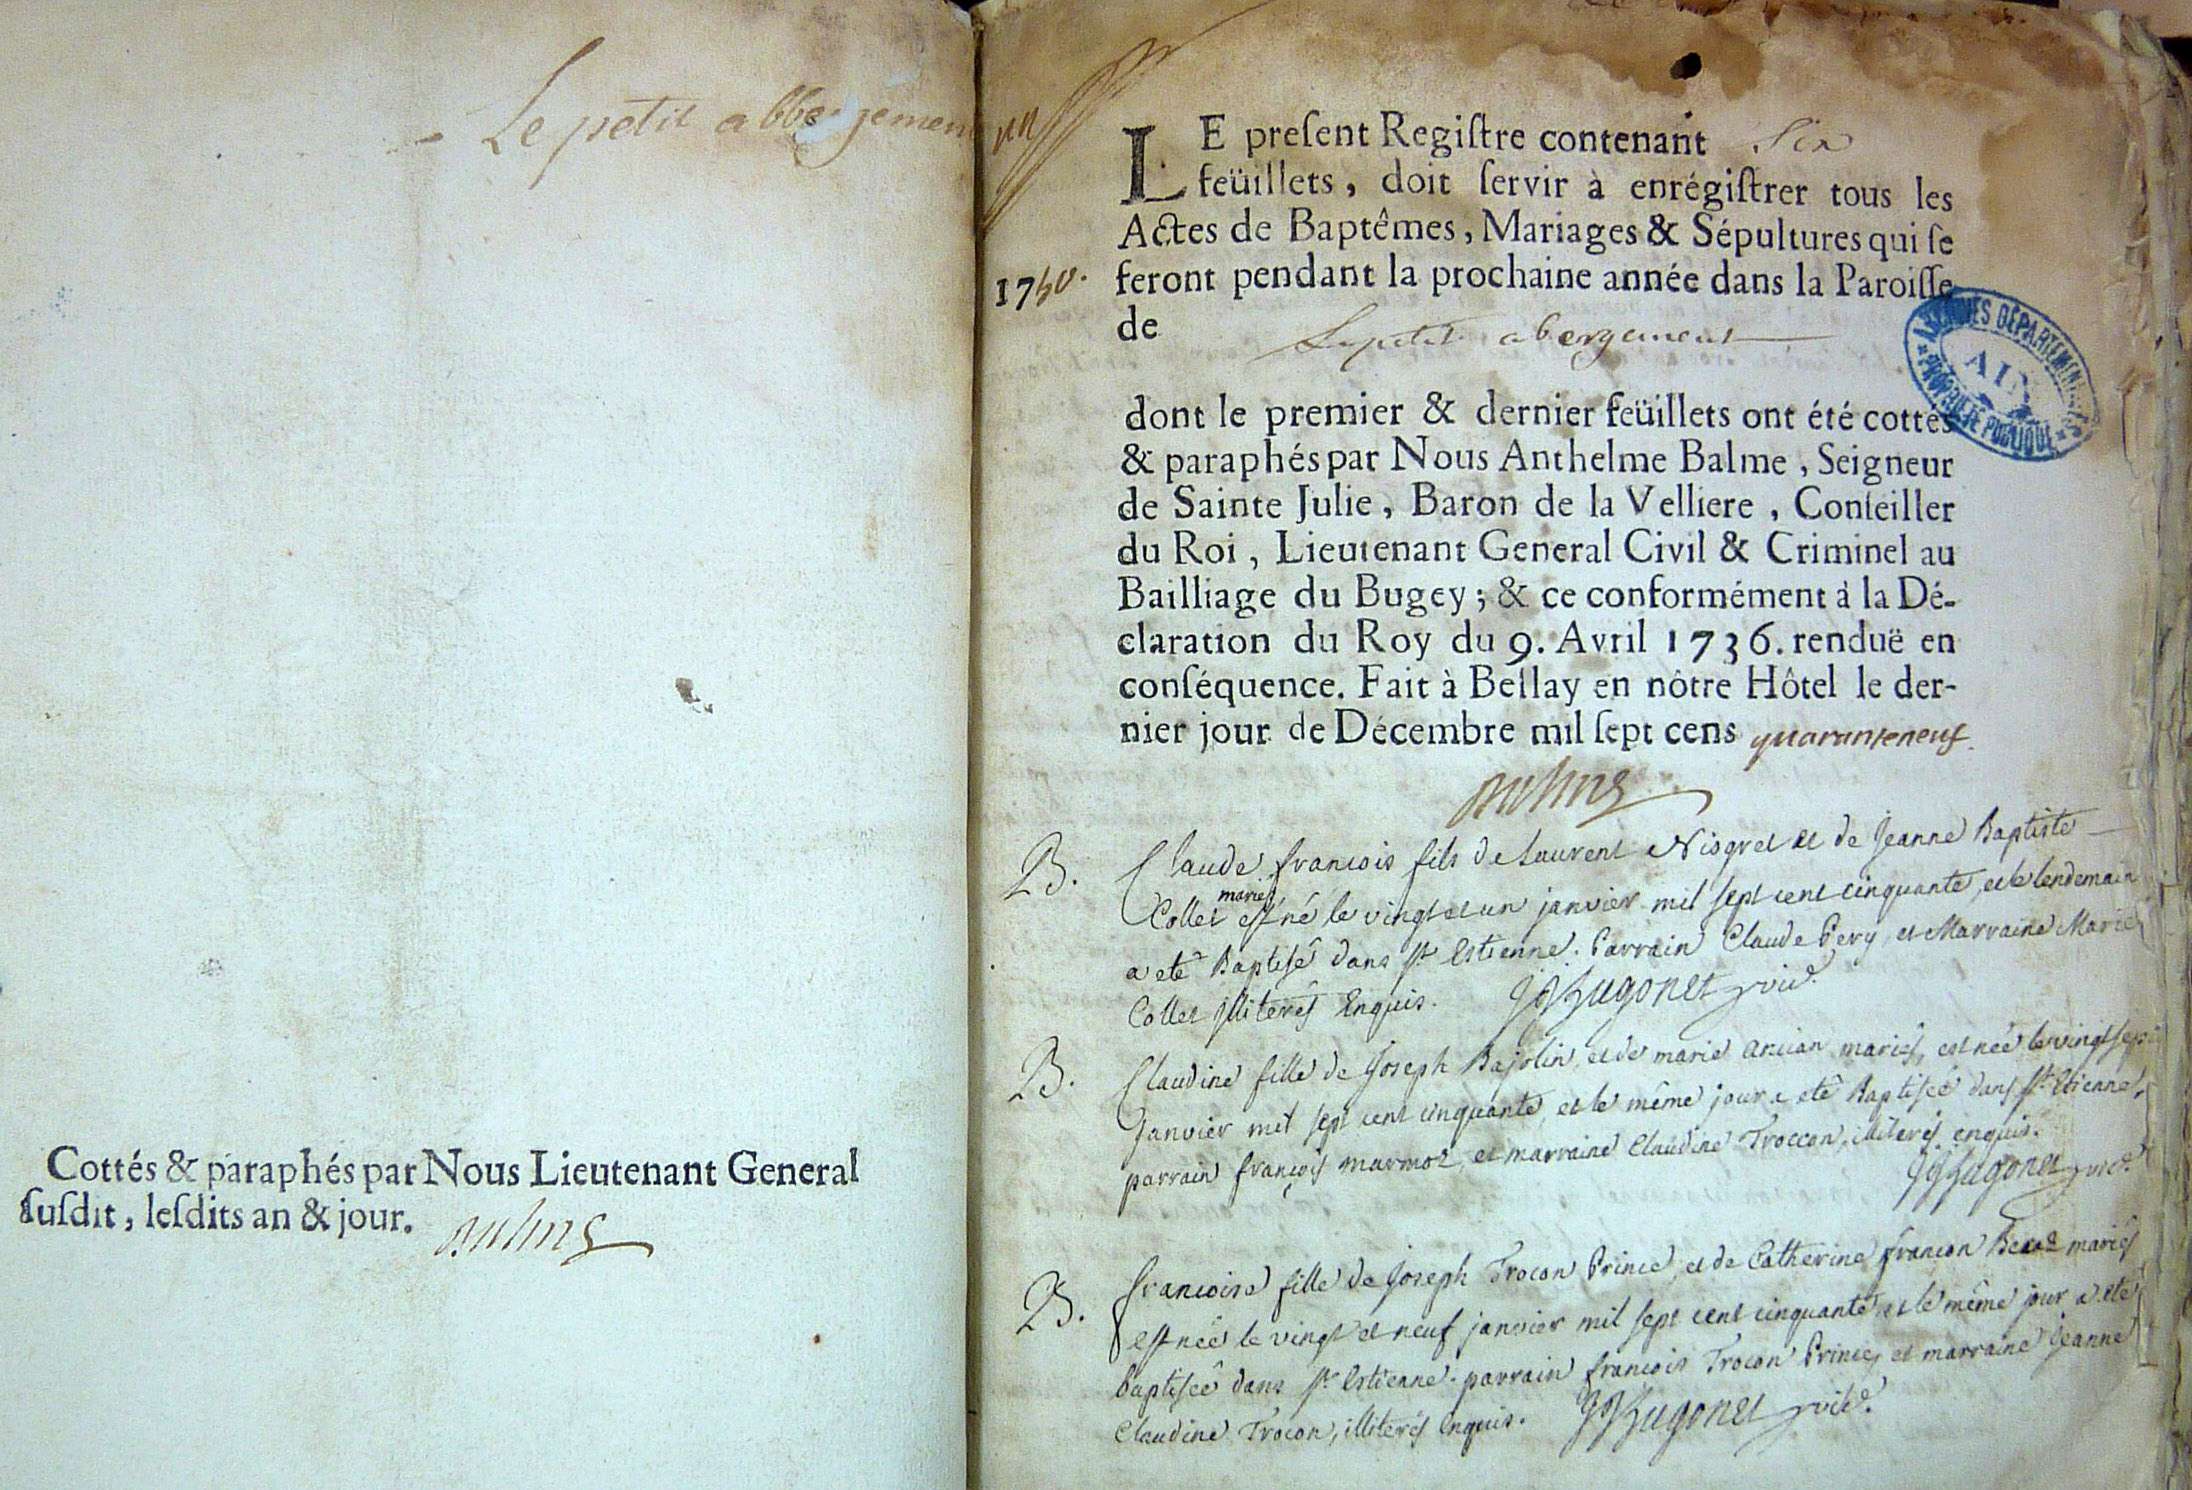 Le petit abbergement
Cottés & paraphés par Nous Lieutenant General
ſuſdit, leſdits an & jour.
LE preſent Regiſtre contenant Six
feüillets, doit ſervir à enrégiſtrer tous les
Actes de Baptêmes, Mariages & Sépultures qui ſe
1750. feront pendant la prochaine année dans la Paroiſſe
de Le petit abergement
ARCHIVES DÉPARTEMENTALES
AIN
PROPRIÉTÉ PUBLIQUE
dont le premier & dernier feüillets ont été cottés
& paraphés par Nous Anthelme Balme, Seigneur
de Sainte Julie, Baron de la Velliere, Conſeiller
du Roi, Lieutenant General Civil & Criminel au
Bailliage du Bugey; & ce conformément à la Dé-
claration du Roy du 9. Avril 1736. renduë en
conſéquence. Fait à Bellay en nôtre Hôtel le der-
nier jour de Décembre mil ſept cens quaranteneuf
B. Claude francois fils de Laurent Niogret et de Jeanne Baptiste
mariés
Collet est né le vingt et un janvier mil sept cent cinquante, et le lendemain
a eté Baptisé dans St Estienne. Parrain Claude Pery, et Marraine Marie
Collet illiterés Enquis. Hugonet vic.
B. Claudine fille de Joseph Bajolin, et de marie mariés, est née le vingt sept
Janvier mil sept cent cinquante, et le même jour a eté Baptisée dans St Etienne,
parrain françois marmot, et marraine Claudine Troccon, illiterés enquis.
Hugonet vic.
B. francoise fille de Joseph Trocon Prince, et de Catherine francon mariés
est née le vingt et neuf janvier mil sept cent cinquante et le même jour a ete
baptisée dans St Estienne. parrain francois Trocon Prince, et marraine Jeanne
Claudine Trocon, illiterés Enquis. Hugonet vic.